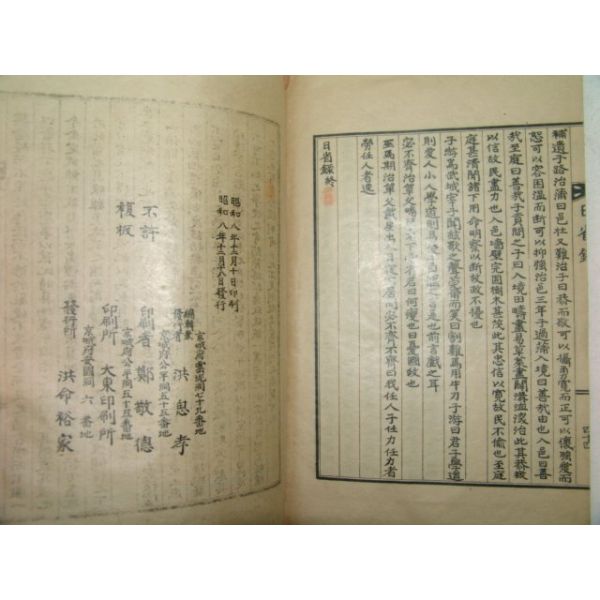 補遺子路治蒲曰邑壮又難治子曰恭而敬可以攝勇寛而正可以懷強愛而
恕可以容困温而断可以抑強治邑三年子過蒲入境曰善哉由也入邑曰善
哉至庭曰善哉子貢聞之子曰入境田疇盡易草萊盡闢溝洫深治此其恭敬
以信故民盡力也入邑墻壁完固樹木甚茂此其忠信以寛故民不偸也至庭
庭甚清閒諸下用命明察以断故政不擾也
子游爲武城宰子聞絃歌之聲莞爾而笑曰割雞焉用牛刀子游曰君子學道
則愛人小人學道則易使子曰是也前言戲之耳
宓不齊治單父鳴琴不下堂
巫馬期治單父戴星出入
曰我任人子任力任力者
勞任人者逸
日省錄終
日省錄
昭和八年十二月十日印刷
昭和八年十二月十八日發行
不許
複板
京城府雲泥洞七十九番地
編輯兼
發行者 洪思孝
京城府公平洞五十五番地
印刷者 鄭敬德
京城府公平洞五十五番地
印刷所 大東印刷所
京城府安國洞六番地
發行所 洪命裕家